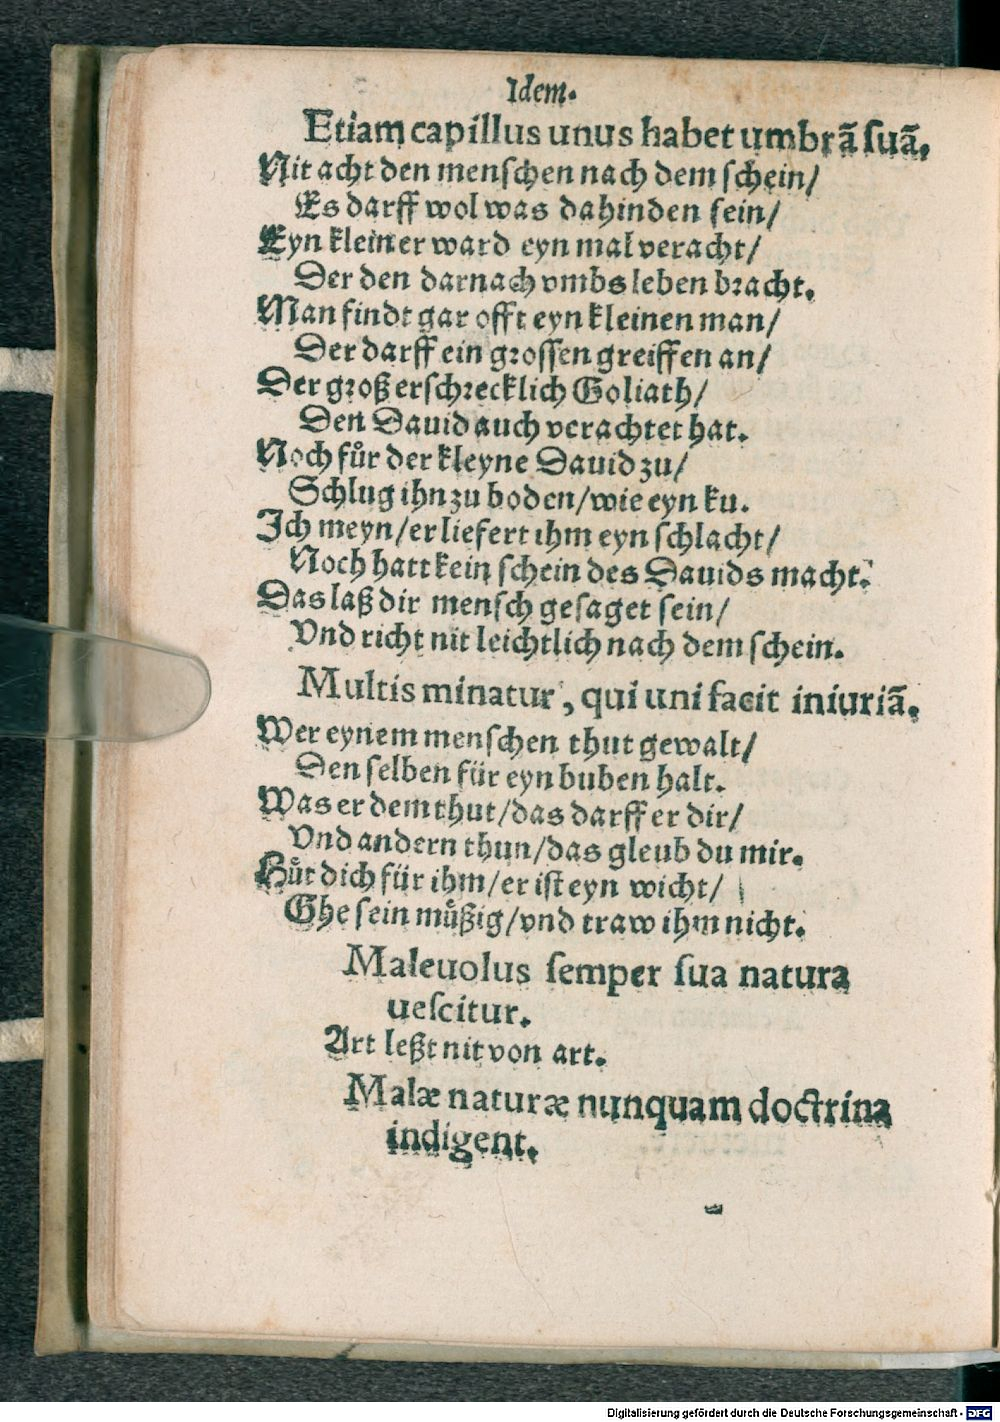 Idem.
Etiam capillus unus habet umbrã ſuã.
Nit acht den menſchen nach dem ſchein/
Es darff wol was dahinden ſein/
Eyn kleiner ward eyn mal veracht/
Der den darnach vmbs leben bracht.
Man findt gar offt eyn kleinen man/
Der darff ein groſſen greiffen an/
Der groß erſchrecklich Goliath/
Den Dauid auch verachtet hat.
Noch fuͤr der kleyne Dauid zu/
Schlug ihn zu boden/wie eyn ku.
Ich meyn/er liefert ihm eyn ſchlacht/
Noch hatt kein ſchein des Dauids macht.
Das laß dir menſch geſaget ſein/
Vnd richt nit leichtlich nach dem ſchein.
Multis minatur, qui uni facit iniuriã.
Wer eynem menſchen thut gewalt/
Den ſelben für eyn buben halt.
Was er dem thut/das darff er dir/
Vnd andern thun/das gleub du mir.
Huͤt dich für ihm/er iſt eyn wicht/
Ghe ſein muͤßig/vnd traw ihm nicht.
Maleuolus ſemper ſua natura
ueſcitur.
Art leßt nit von art.
Malæ naturæ nunquam doctrina
indigent.
Digitalisierung gefördert durch die Deutsche Forschungsgemeinschaft - DFG